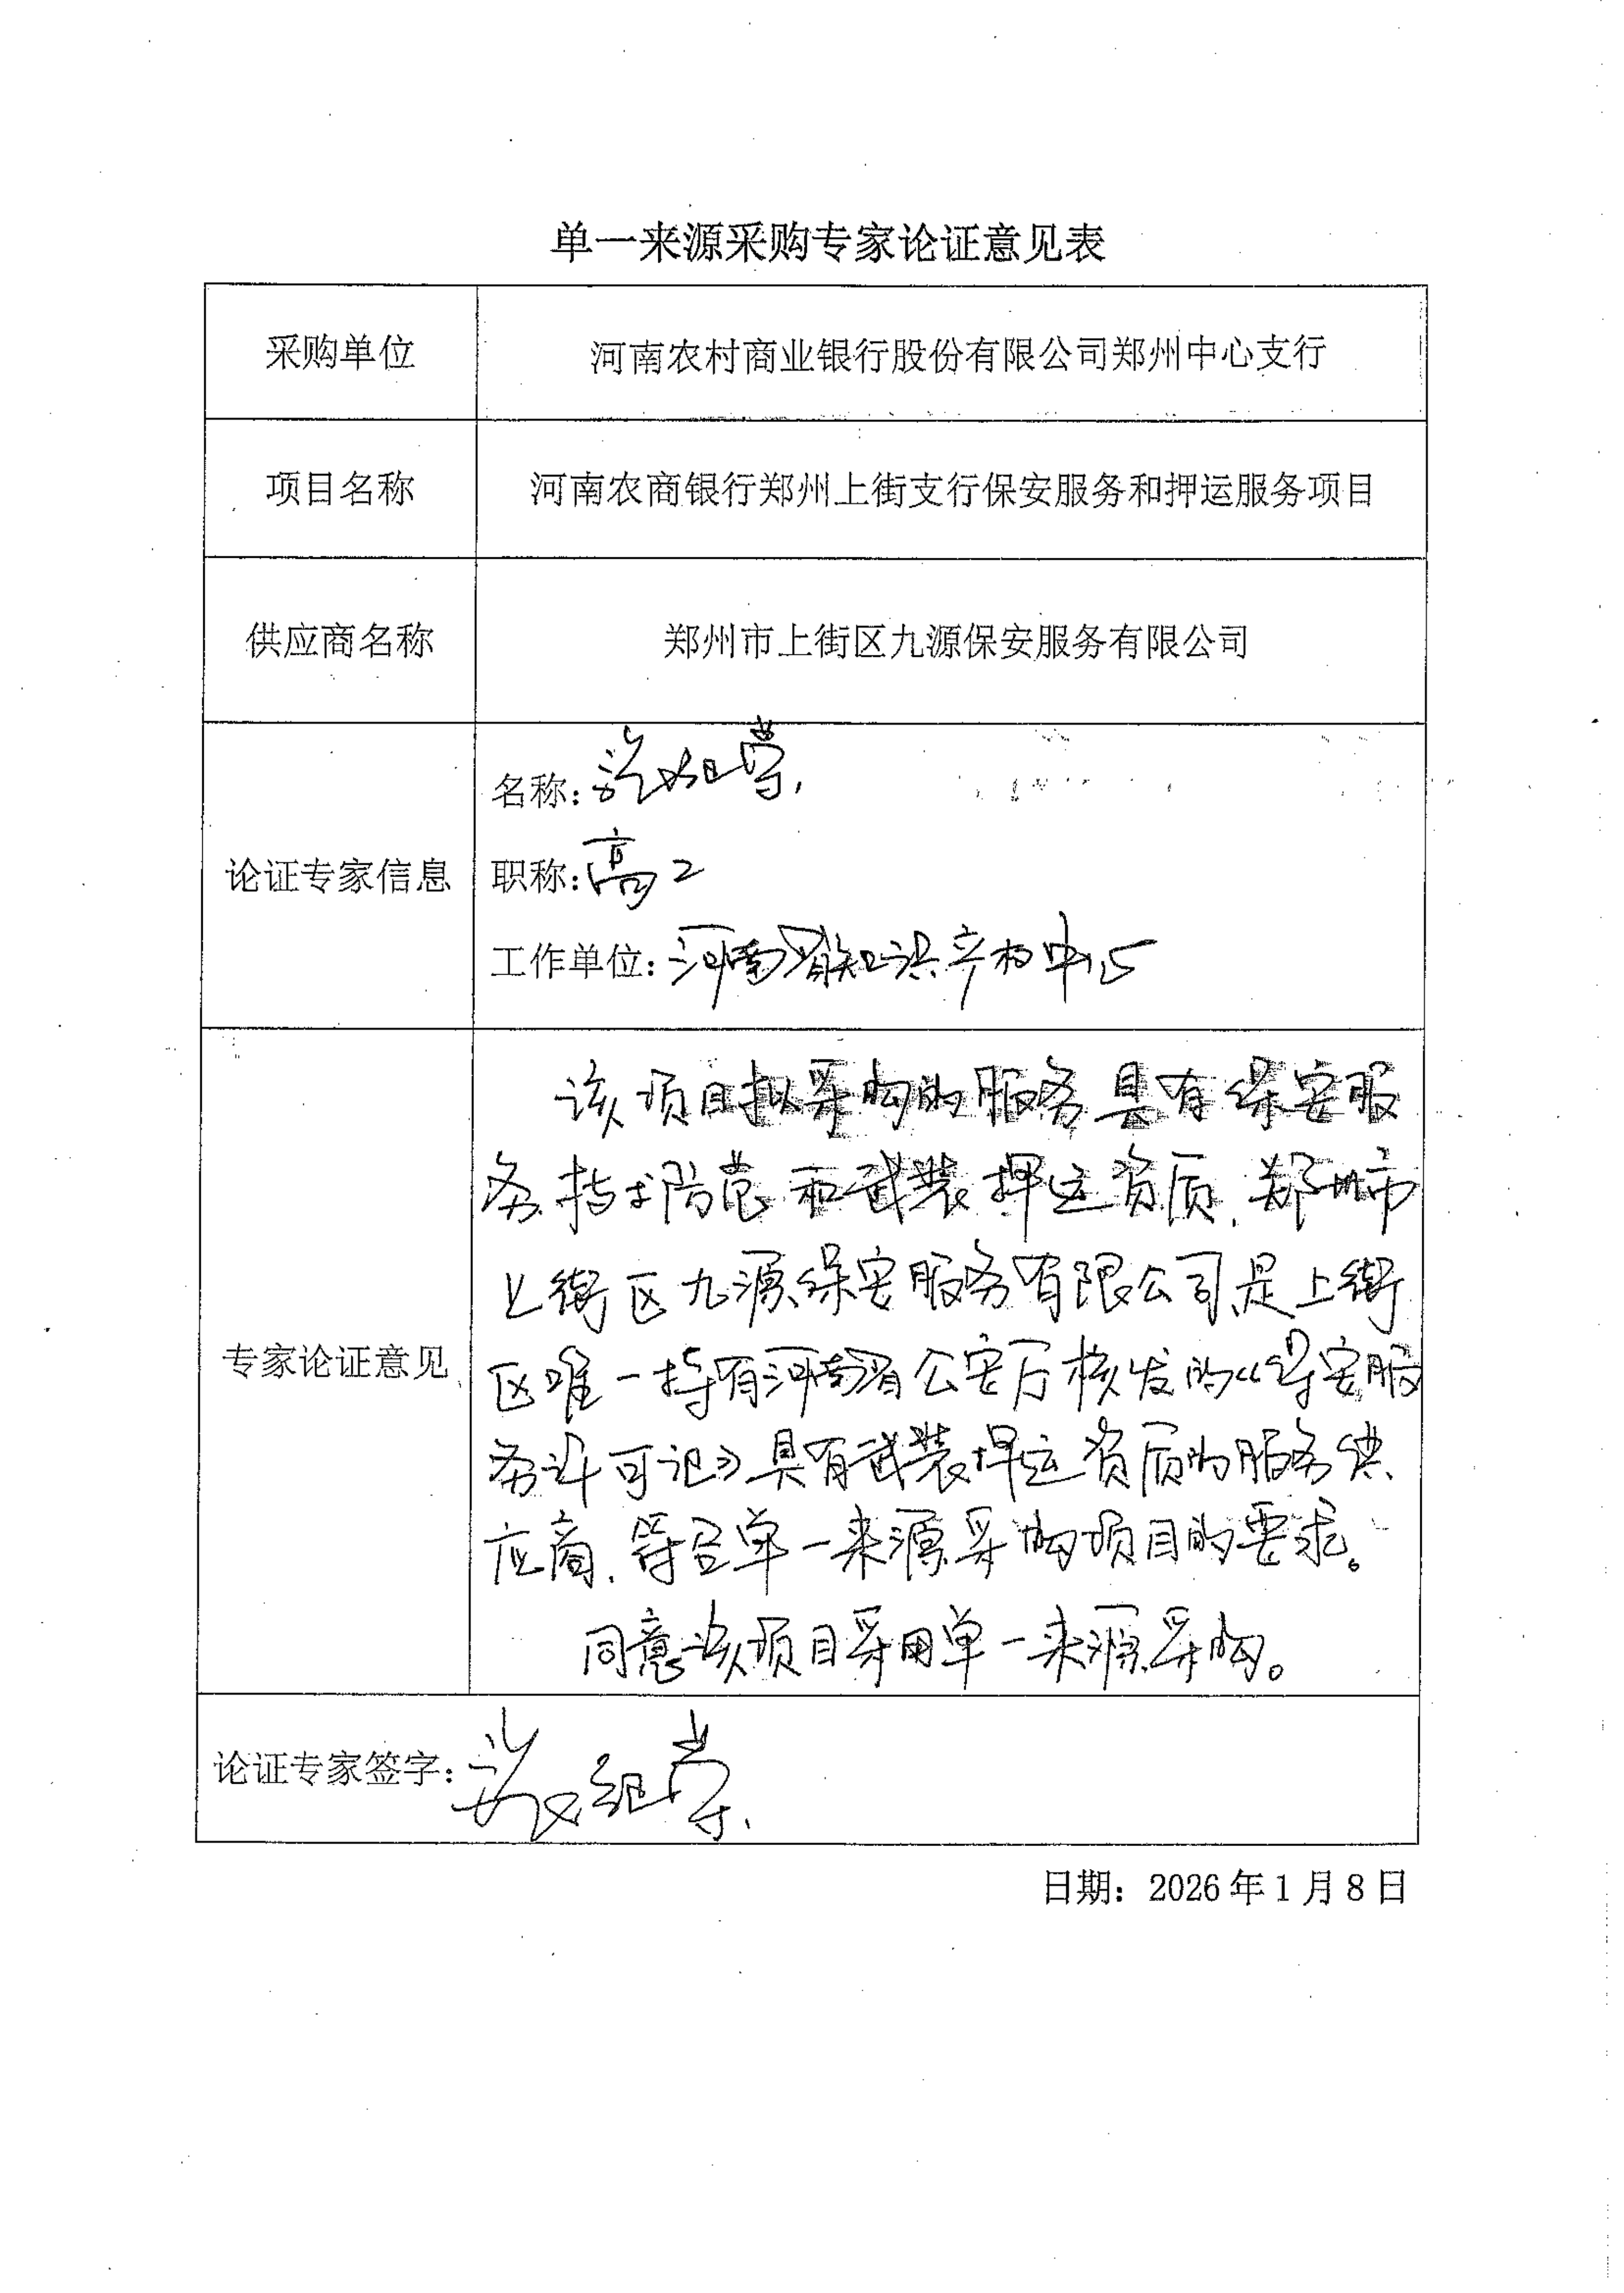 单一来源采购专家论证意见表
采购单位 河南农村商业银行股份有限公司郑州中心支行
项目名称 河南农商银行郑州上街支行保安服务和押运服务项目
供应商名称 郑州市上街区九源保安服务有限公司
论证专家信息
名称:
职称:高工
工作单位:河南省知识产权中心
专家论证意见
该项目拟采购的服务具有保安服
务、技术防范和武装押运资质,郑州市
上街区九源保安服务有限公司是上街
区唯一持有河南省公安厅核发的《保安服
务许可证》具有武装押运资质的服务供
应商,符合单一来源采购项目的要求。
同意该项目采用单一来源采购。
论证专家签字:
日期:2026年1月8日